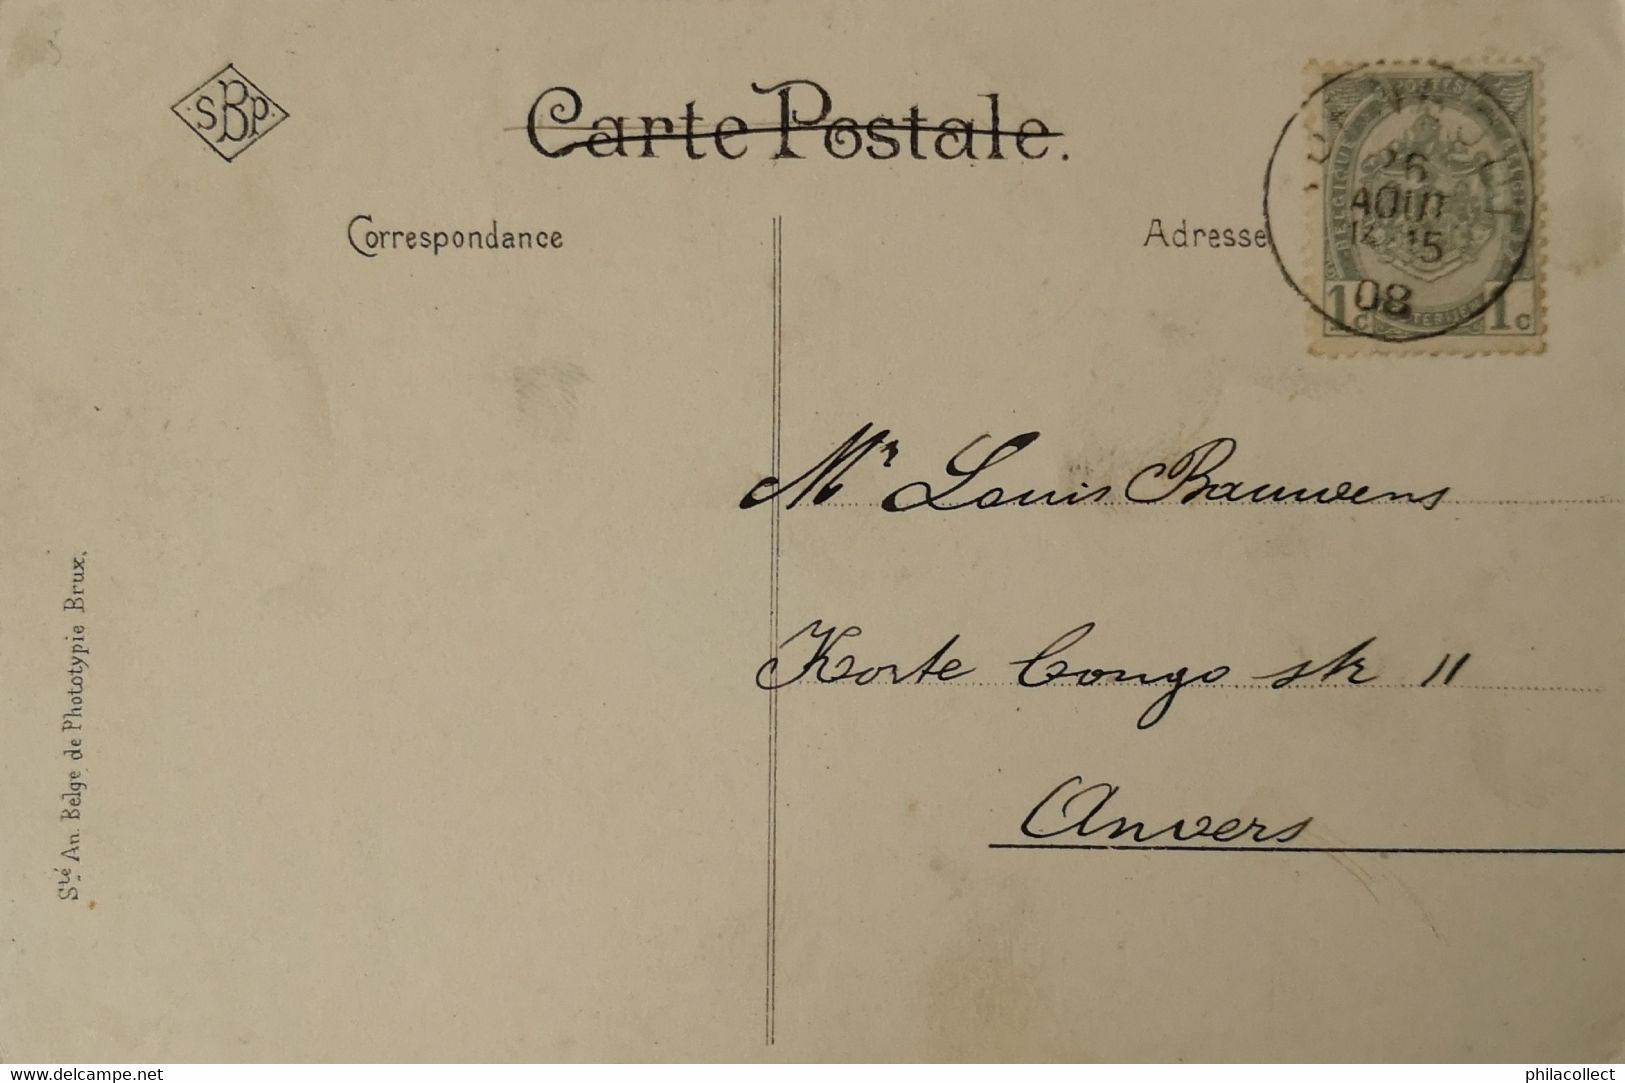 SBP
Carte Postale.
Correspondance
Adresse
POSTES
BELGIQUE
AOUT
15
08
1c 1c
Mr Louis Bauwens
Korte Congo str 11
Anvers
Sté An. Belge de Phototypie Brux.
delcampe.net
philacollect